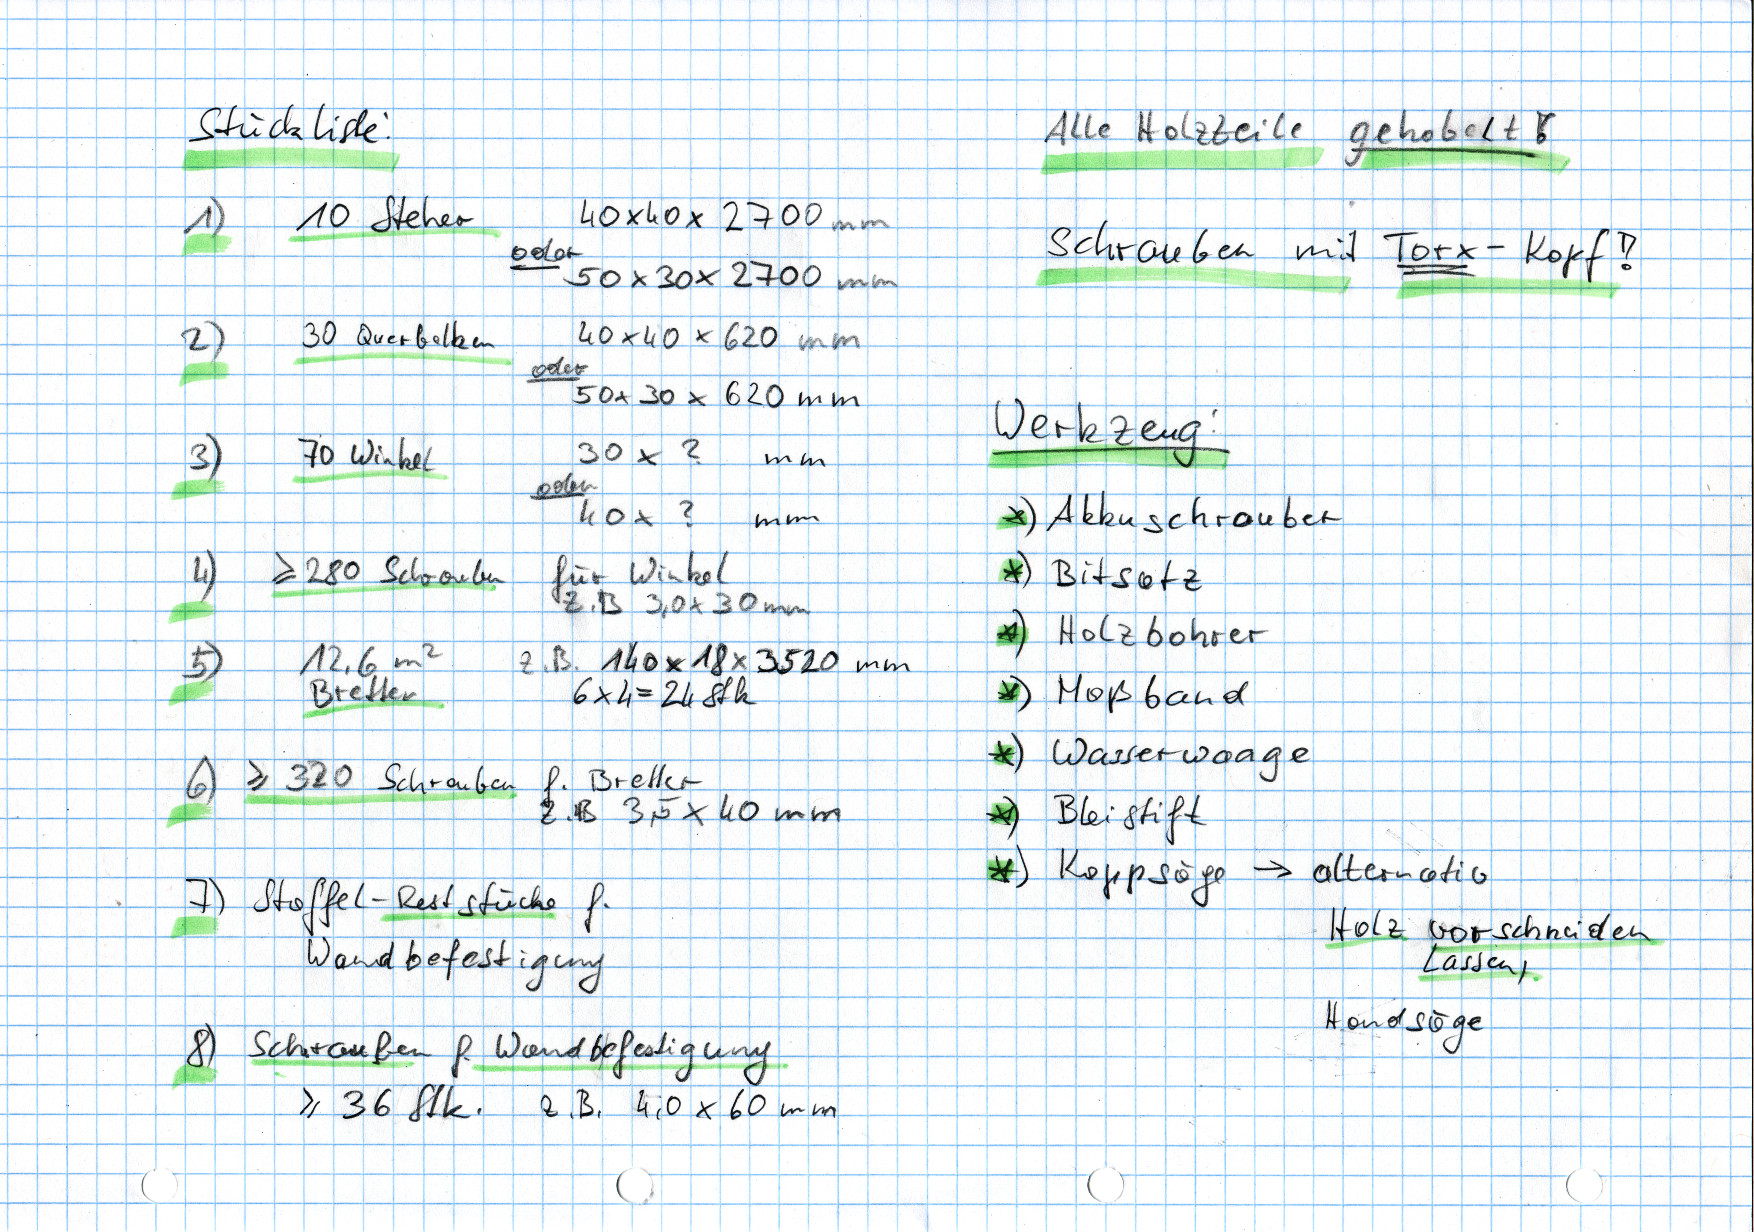 Stückliste:
1) 10 Steher 40x40x 2700 mm
oder
50x30x 2700 mm
2) 30 Querbalken 40x40 x 620 mm
oder
50x30 x 620 mm
3) 70 Winkel 30 x ? mm
oder
40 x ? mm
4) ≥280 Schrauben für Winkel
z.B 3,0x30mm
5) 12,6 m² z.B. 140x18x3520 mm
Bretter 6x4=24 Stk
6) ≥ 320 Schrauben f. Bretter
z.B 3,5 x 40 mm
7) Staffel-Reststücke f.
Wandbefestigung
8) Schrauben f. Wandbefestigung
≥ 36 Stk. z.B. 4,0 x 60 mm
Alle Holzteile gehobelt!
Schrauben mit Torx-Kopf!
Werkzeug:
*) Akkuschrauber
*) Bitsatz
*) Holzbohrer
*) Maßband
*) Wasserwaage
*) Bleistift
*) Kappsäge → alternativ
Holz vorschneiden
lassen,
Handsäge